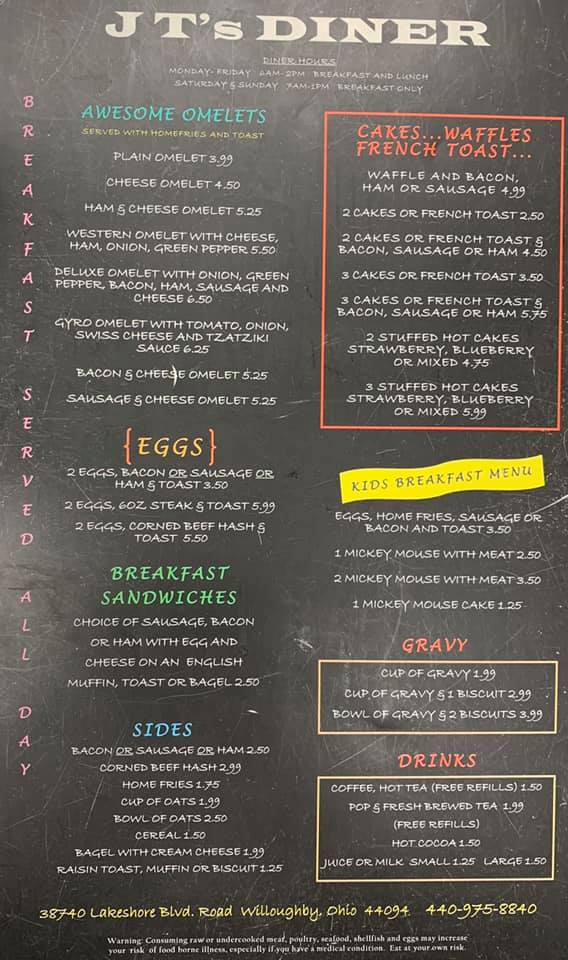 J T's DINER
DINER HOURS
MONDAY- FRIDAY 6AM-2PM BREAKFAST AND LUNCH
SATURDAY & SUNDAY 7AM-1PM BREAKFAST ONLY
BREAKFAST SERVED ALL DAY
AWESOME OMELETS
SERVED WITH HOMEFRIES AND TOAST
PLAIN OMELET 3.99
CHEESE OMELET 4.50
HAM & CHEESE OMELET 5.25
WESTERN OMELET WITH CHEESE,
HAM, ONION, GREEN PEPPER 5.50
DELUXE OMELET WITH ONION, GREEN
PEPPER, BACON, HAM, SAUSAGE AND
CHEESE 6.50
GYRO OMELET WITH TOMATO, ONION,
SWISS CHEESE AND TZATZIKI
SAUCE 6.25
BACON & CHEESE OMELET 5.25
SAUSAGE & CHEESE OMELET 5.25
{EGGS}
2 EGGS, BACON OR SAUSAGE OR
HAM & TOAST 3.50
2 EGGS, 6OZ STEAK & TOAST 5.99
2 EGGS, CORNED BEEF HASH &
TOAST 5.50
BREAKFAST
SANDWICHES
CHOICE OF SAUSAGE, BACON
OR HAM WITH EGG AND
CHEESE ON AN ENGLISH
MUFFIN, TOAST OR BAGEL 2.50
SIDES
BACON OR SAUSAGE OR HAM 2.50
CORNED BEEF HASH 2.99
HOME FRIES 1.75
CUP OF OATS 1.99
BOWL OF OATS 2.50
CEREAL 1.50
BAGEL WITH CREAM CHEESE 1.99
RAISIN TOAST, MUFFIN OR BISCUIT 1.25
CAKES...WAFFLES
FRENCH TOAST...
WAFFLE AND BACON,
HAM OR SAUSAGE 4.99
2 CAKES OR FRENCH TOAST 2.50
2 CAKES OR FRENCH TOAST &
BACON, SAUSAGE OR HAM 4.50
3 CAKES OR FRENCH TOAST 3.50
3 CAKES OR FRENCH TOAST &
BACON, SAUSAGE OR HAM 5.75
2 STUFFED HOT CAKES
STRAWBERRY, BLUEBERRY
OR MIXED 4.75
3 STUFFED HOT CAKES
STRAWBERRY, BLUEBERRY
OR MIXED 5.99
KIDS BREAKFAST MENU
EGGS, HOME FRIES, SAUSAGE OR
BACON AND TOAST 3.50
1 MICKEY MOUSE WITH MEAT 2.50
2 MICKEY MOUSE WITH MEAT 3.50
1 MICKEY MOUSE CAKE 1.25
GRAVY
CUP OF GRAVY 1.99
CUP OF GRAVY & 1 BISCUIT 2.99
BOWL OF GRAVY & 2 BISCUITS 3.99
DRINKS
COFFEE, HOT TEA (FREE REFILLS) 1.50
POP & FRESH BREWED TEA 1.99
(FREE REFILLS)
HOT COCOA 1.50
JUICE OR MILK SMALL 1.25 LARGE 1.50
38740 Lakeshore Blvd. Road Willoughby, Ohio 44094 440-975-8840
Warning: Consuming raw or undercooked meat, poultry, seafood, shellfish and eggs may increase
your risk of food borne illness, especially if you have a medical condition. Eat at your own risk.